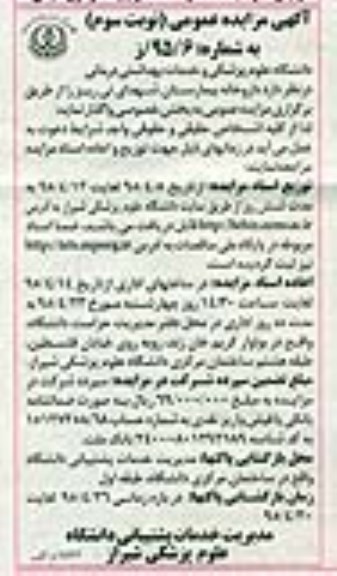 آگهی مزایده عمومی (نوبت سوم)
به شماره: ۹۵/۶/ز
دانشگاه علوم پزشکی و خدمات بهداشتی درمانی
در نظر دارد داروخانه بیمارستان شهدای نی ریز را از طریق
برگزاری مزایده عمومی به بخش خصوصی واگذار نماید
لذا از کلیه اشخاص حقیقی و حقوقی واجد شرایط دعوت به
عمل می آید در زمانهای ذیل جهت توزیع و اعاده اسناد مزایده
مراجعه نمایند:
توزیع اسناد مزایده: از تاریخ ۹۸/۴/۵ لغایت ۹۸/۴/۱۲ به
مدت شش روز از طریق سایت دانشگاه علوم پزشکی شیراز به آدرس
قابل دریافت می باشد، ضمنا اسناد
مربوطه در پایگاه ملی مناقصات به آدرس
نیز ثبت گردیده است.
اعاده اسناد مزایده: در ساعتهای اداری از تاریخ ۹۸/۴/۱۴
لغایت ساعت ۱۴:۳۰ روز چهارشنبه مورخ ۹۸/۴/۲۳ به
مدت ده روز اداری در محل دفتر مدیریت حراست دانشگاه
واقع در بولوار کریم خان زند، روبه روی خیابان فلسطین،
طبقه هشتم ساختمان مرکزی دانشگاه علوم پزشکی شیراز.
مبلغ تضمین سپرده شرکت در مزایده: سپرده شرکت در
مزایده به مبلغ ریال به صورت ضمانتنامه
بانکی یا فیش واریز نقدی به شماره حساب
به کد شناسه بانک ملت.
محل بازگشایی پاکتها: مدیریت خدمات پشتیبانی دانشگاه
واقع در ساختمان مرکزی دانشگاه، طبقه اول
زمان بازگشایی پاکتها: در بازه زمانی ۹۸/۴/۲۶ لغایت
۹۸/۴/۳۰
مدیریت خدمات پشتیبانی دانشگاه
علوم پزشکی شیراز